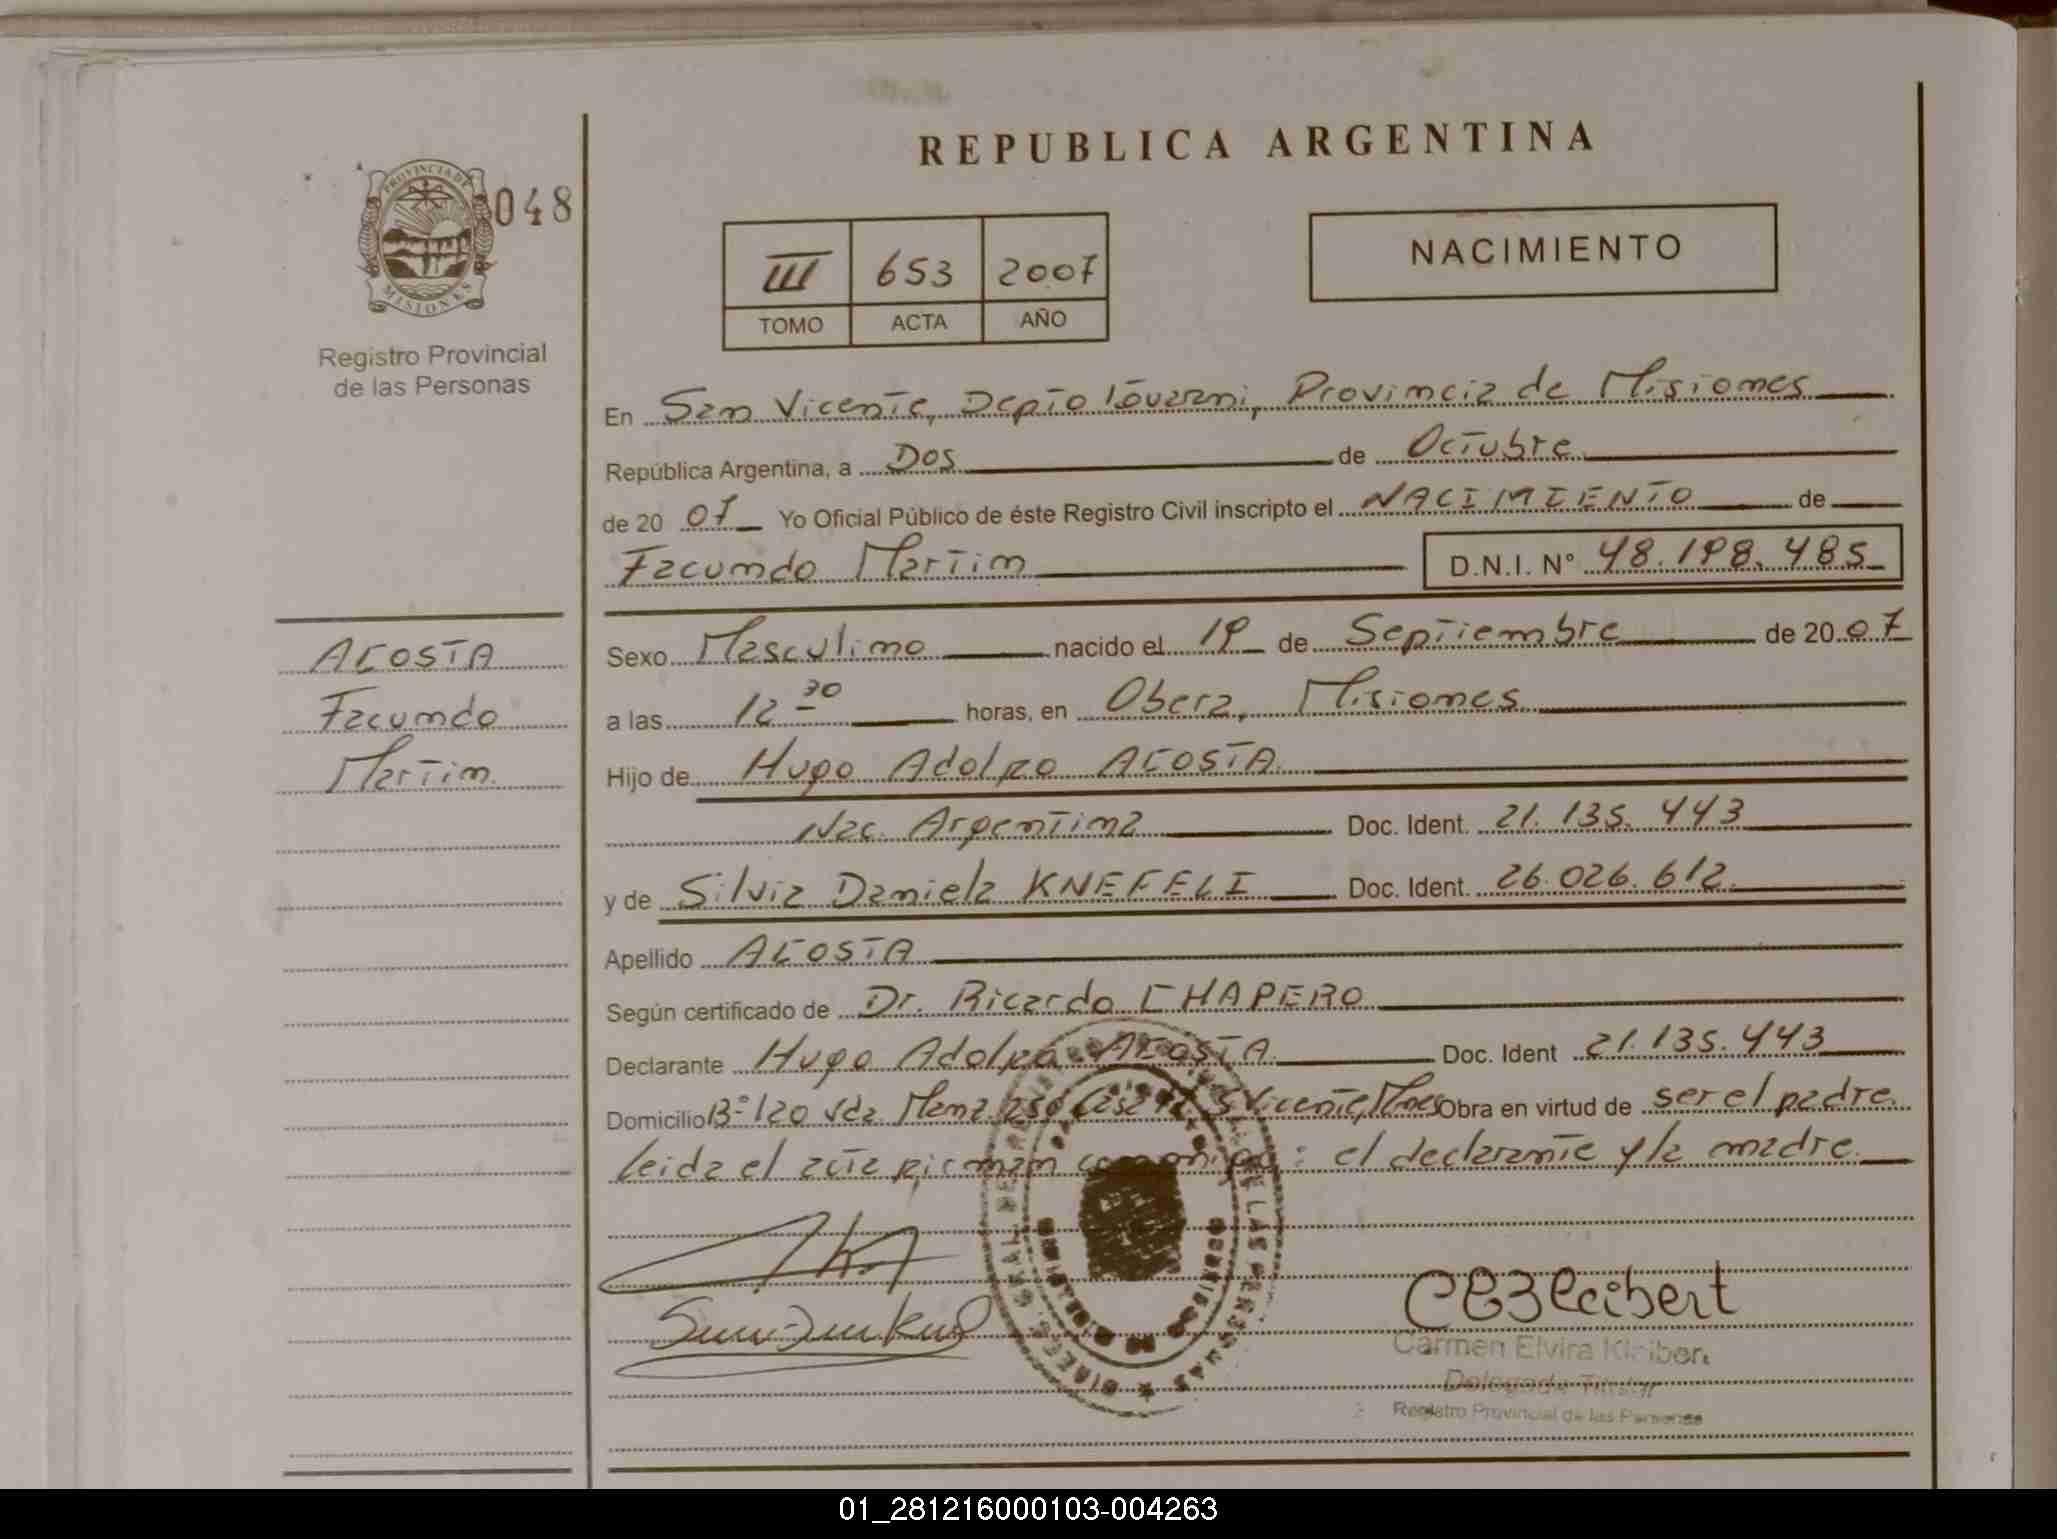 REPUBLICA ARGENTINA
PROVINCIA DE
MISIONES
048
Registro Provincial
de las Personas
III 653 2007
TOMO ACTA AÑO
NACIMIENTO
En San Vicente, Depto Guarani, Provincia de Misiones
República Argentina, a Dos de Octubre
de 20 07 Yo Oficial Público de éste Registro Civil inscripto el NACIMIENTO de
Facundo Martin D.N.I. N° 48.198.485
ACOSTA
Facundo
Martin
Sexo Masculino nacido el 19 de Septiembre de 20 07
a las 12 30 horas, en Obera, Misiones
Hijo de Hugo Adolfo ACOSTA
Nac. Argentina Doc. Ident. 21.135.443
y de Silvia Daniela KNEFELI Doc. Ident. 26.026.612
Apellido ACOSTA
Según certificado de Dr. Ricardo CHAPERO
Declarante Hugo Adolfo ACOSTA Doc. Ident 21.135.443
Domicilio B° 120 Vda Casa S Vicente, Mnes Obra en virtud de ser el padre
Leida el acta firman : el declarante y la madre
Carmen Elvira Kleibert
Delegada Titular
Registro Provincial de las Personas
01_281216000103-004263